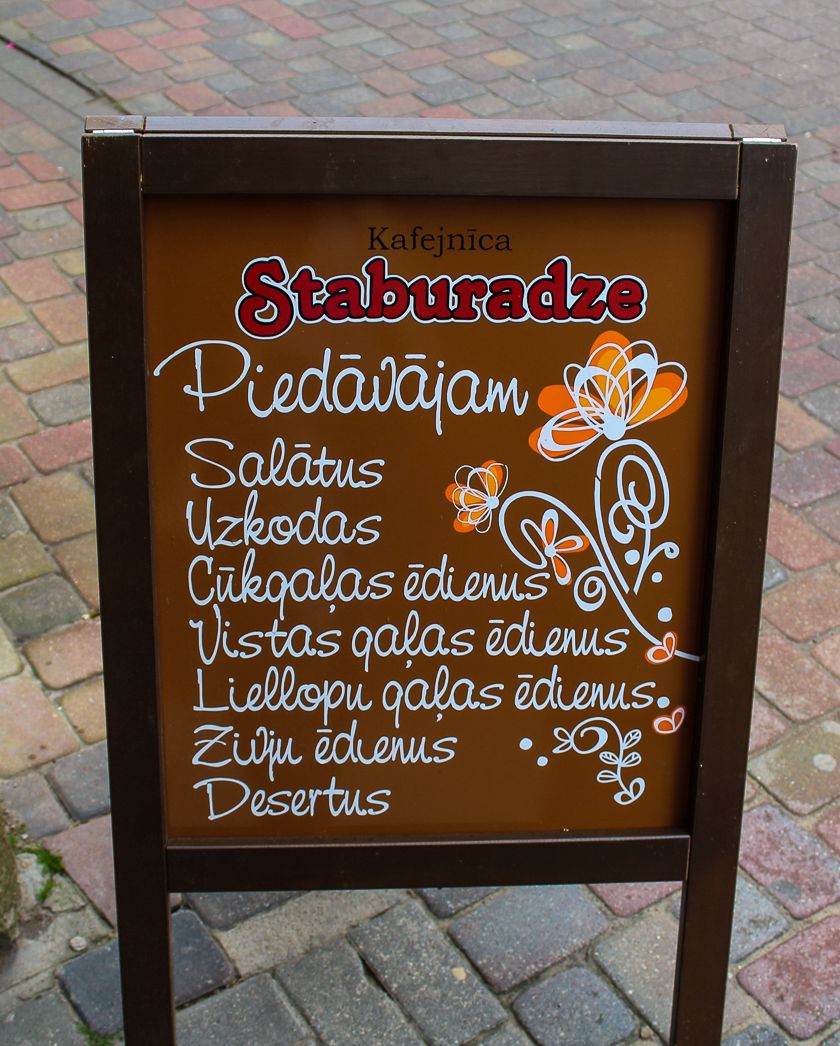 Kafejnīca
Staburadze
Piedāvājam
Salātus
Uzkodas
Cūkgaļas ēdienus
Vistas gaļas ēdienus
Liellopu gaļas ēdienus
Zivju ēdienus
Desertus